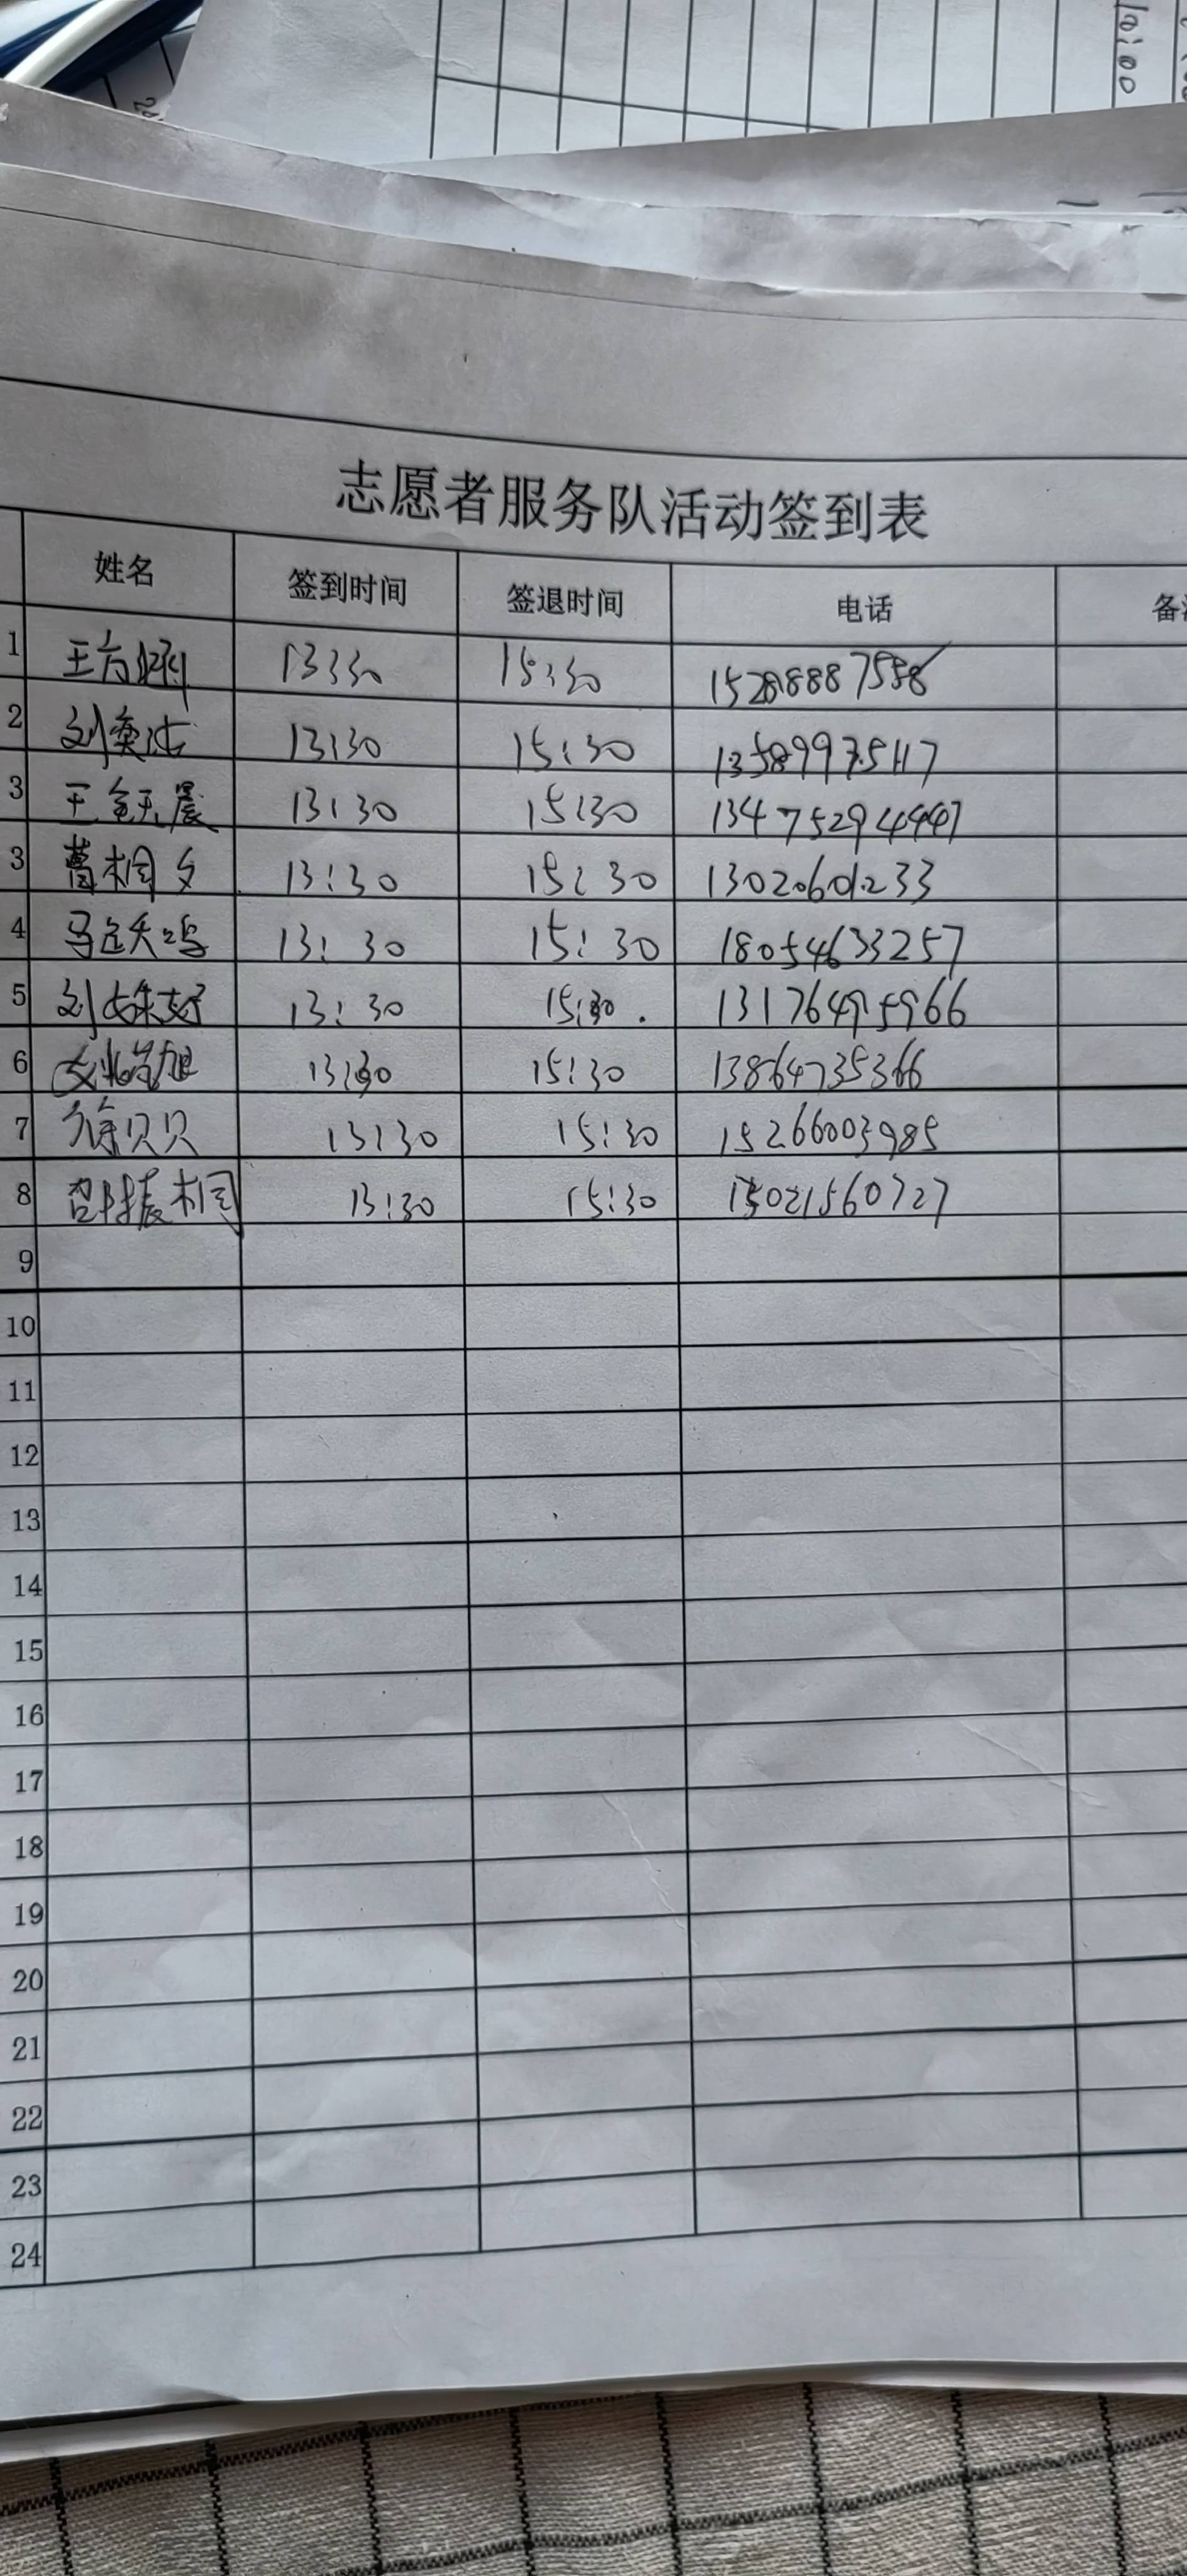 10:00
志愿者服务队活动签到表
姓名 签到时间 签退时间 电话 备
1 13:30 15:30
2 刘奕 13:30 15:30 13589975117
3 13:30 15:30 13475294447
3 曹桐 13:30 15:30 13020601233
4 马 13:30 15:30 18054633257
5 刘姝妤 13:30 15:30 13176495966
6 13:30 15:30 13864735366
7 徐贝贝 13:30 15:30 15266003985
8 邵振桐 13:30 15:30 15021560727
9
10
11
12
13
14
15
16
17
18
19
20
21
22
23
24